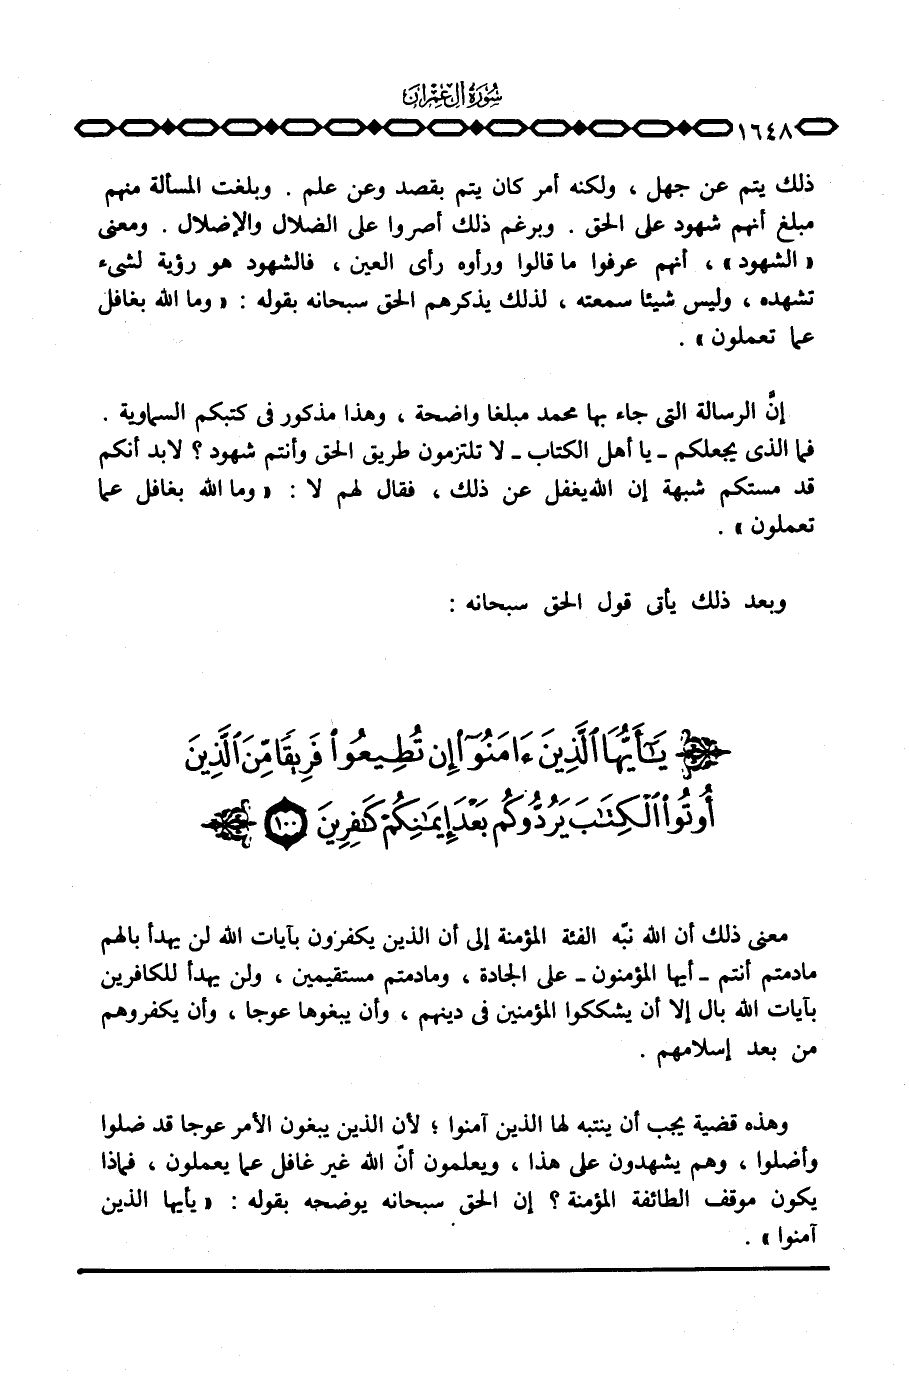 سُورَةُ آلِ عِمْرَانَ
١٦٤٨
ذلك يتم عن جهل ، ولكنه أمر كان يتم بقصد وعن علم . وبلغت المسألة منهم
مبلغ أنهم شهود على الحق . وبرغم ذلك أصروا على الضلال والإضلال . ومعنى
« الشهود » ، أنهم عرفوا ما قالوا ورأوه رأى العين ، فالشهود هو رؤية لشىء
تشهده ، وليس شيئا سمعته ، لذلك يذكرهم الحق سبحانه بقوله : « وما الله بغافل
عما تعملون » .
إنَّ الرسالة التى جاء بها محمد مبلغا واضحة ، وهذا مذكور فى كتبكم السماوية .
فما الذى يجعلكم ـ يا أهل الكتاب ـ لا تلتزمون طريق الحق وأنتم شهود ؟ لابد أنكم
قد مستكم شبهة إن الله يغفل عن ذلك ، فقال لهم لا : « وما الله بغافل عما
تعملون » .
وبعد ذلك يأتى قول الحق سبحانه :
يَٰٓأَيُّهَا ٱلَّذِينَ ءَامَنُوٓا۟ إِن تُطِيعُوا۟ فَرِيقًا مِّنَ ٱلَّذِينَ
أُوتُوا۟ ٱلْكِتَٰبَ يَرُدُّوكُم بَعْدَ إِيمَٰنِكُمْ كَٰفِرِينَ ١٠٠
معنى ذلك أن الله نبّه الفئة المؤمنة إلى أن الذين يكفرون بآيات الله لن يهدأ بالهم
مادمتم أنتم ـ أيها المؤمنون ـ على الجادة ، ومادمتم مستقيمين ، ولن يهدأ للكافرين
بآيات الله بال إلا أن يشككوا المؤمنين فى دينهم ، وأن يبغوها عوجا ، وأن يكفروهم
من بعد إسلامهم .
وهذه قضية يجب أن ينتبه لها الذين آمنوا ؛ لأن الذين يبغون الأمر عوجا قد ضلوا
وأضلوا ، وهم يشهدون على هذا ، ويعلمون أنّ الله غير غافل عما يعملون ، فماذا
يكون موقف الطائفة المؤمنة ؟ إن الحق سبحانه يوضحه بقوله : « يأيها الذين
آمنوا » .